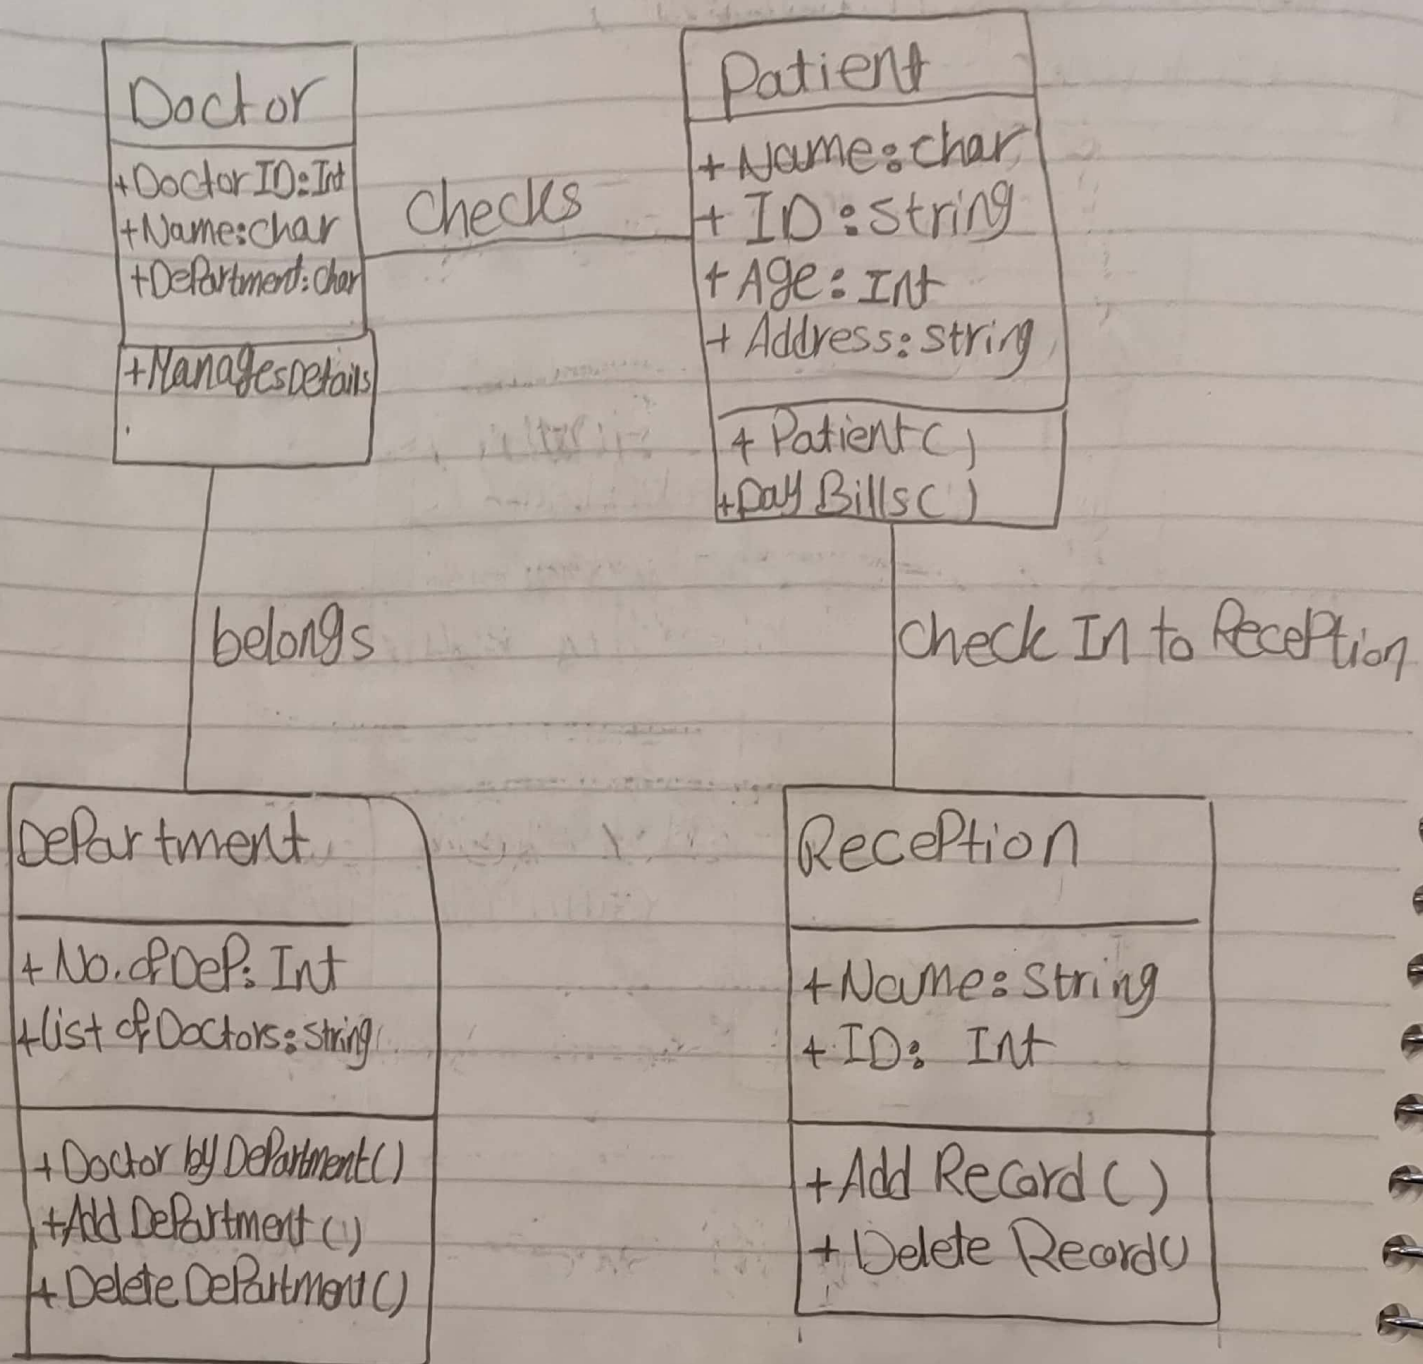 Doctor
+Doctor ID:Int
+Name:char
+Department:char
+ManagesDetails
checks
Patient
+Name:char
+ ID:String
+ Age:Int
+ Address:string
+ Patient()
+Pay Bills()
belongs
check In to Reception
Department
+ No. of Dep: Int
+List of Doctors:string
+Doctor by Department()
+Add Department()
+ Delete Department()
Reception
+Name:String
+ ID: Int
+Add Record()
+ Delete Record()